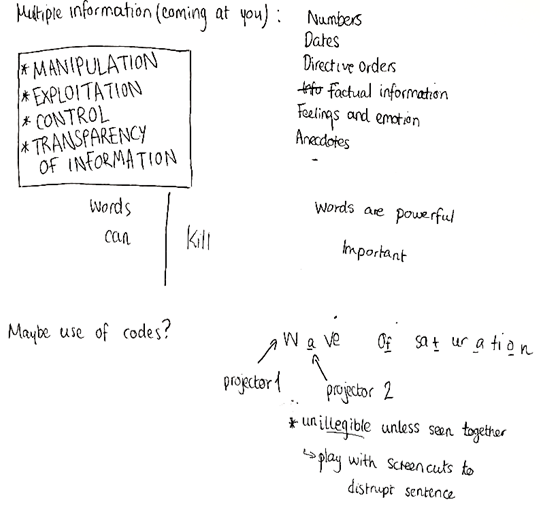 Multiple information (coming at you) :
Numbers
Dates
Directive orders
Info Factual information
Feelings and emotion
Anecdotes
-
* MANIPULATION
* EXPLOITATION
* CONTROL
* TRANSPARENCY
OF INFORMATION
Words
can
Kill
Words are powerful
Important
Maybe use of codes?
Wave Of saturation
projector 1
projector 2
* unillegible unless seen together
↳ play with screencuts to
distrupt sentence